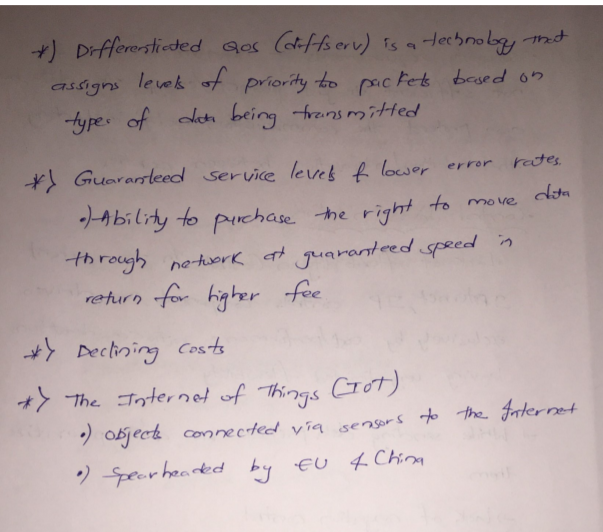 *) Differentiated QoS (diffserv) is a technology that
assigns levels of priority to packets based on
types of data being transmitted
*) Guaranteed service levels & lower error rates.
•) Ability to purchase the right to move data
through network at guaranteed speed in
return for higher fee
*) Declining costs
*) The Internet of Things (IoT)
•) objects connected via sensors to the Internet
•) Spearheaded by EU & China